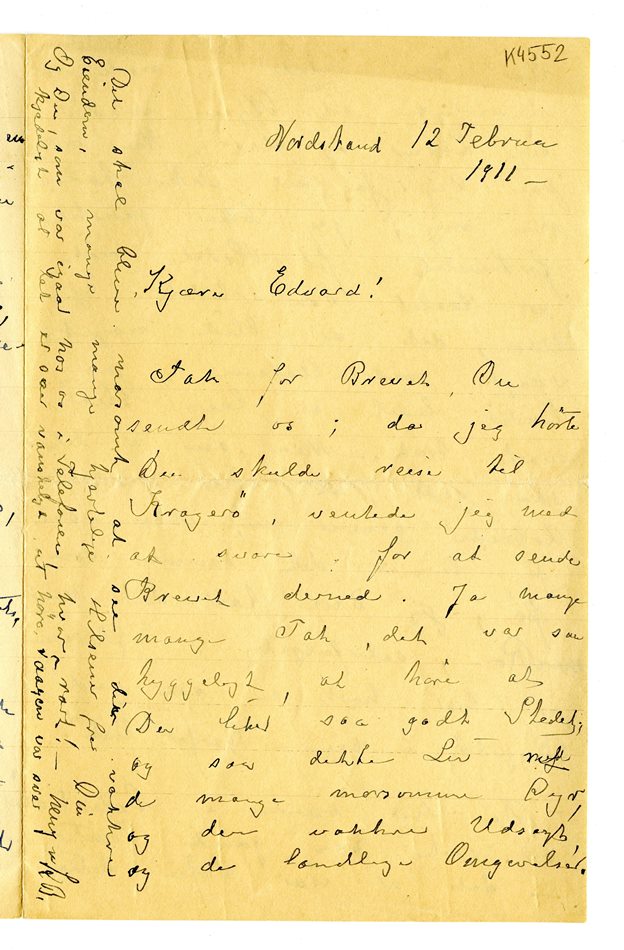 K4552
Nordstrand 12 Februa
1911 –
Kjære Edvard!
Tak for Brevet, Du
sendte os; da jeg hörte
Du skulde reise til
Kragerö, ventede jeg med
at svare for at sende
Brevet derned. Ja mange
mange Tak, det var saa
hyggeligt, at höre at
Du liker saa godt Stedet;
og saa dette Liv med
de mange morsomme Dyr,
og den vakkre Udsigt
og de landlige Omgivelser.
Det skal blive morsomt at see din vakkre
Eiendom, mange mange hjertelige Hilsener fra Din
Og Du, som var igaar hos os i Telefonen, hvor rart! –
kjedeligt at det er saa vanskeligt at höre, var svær